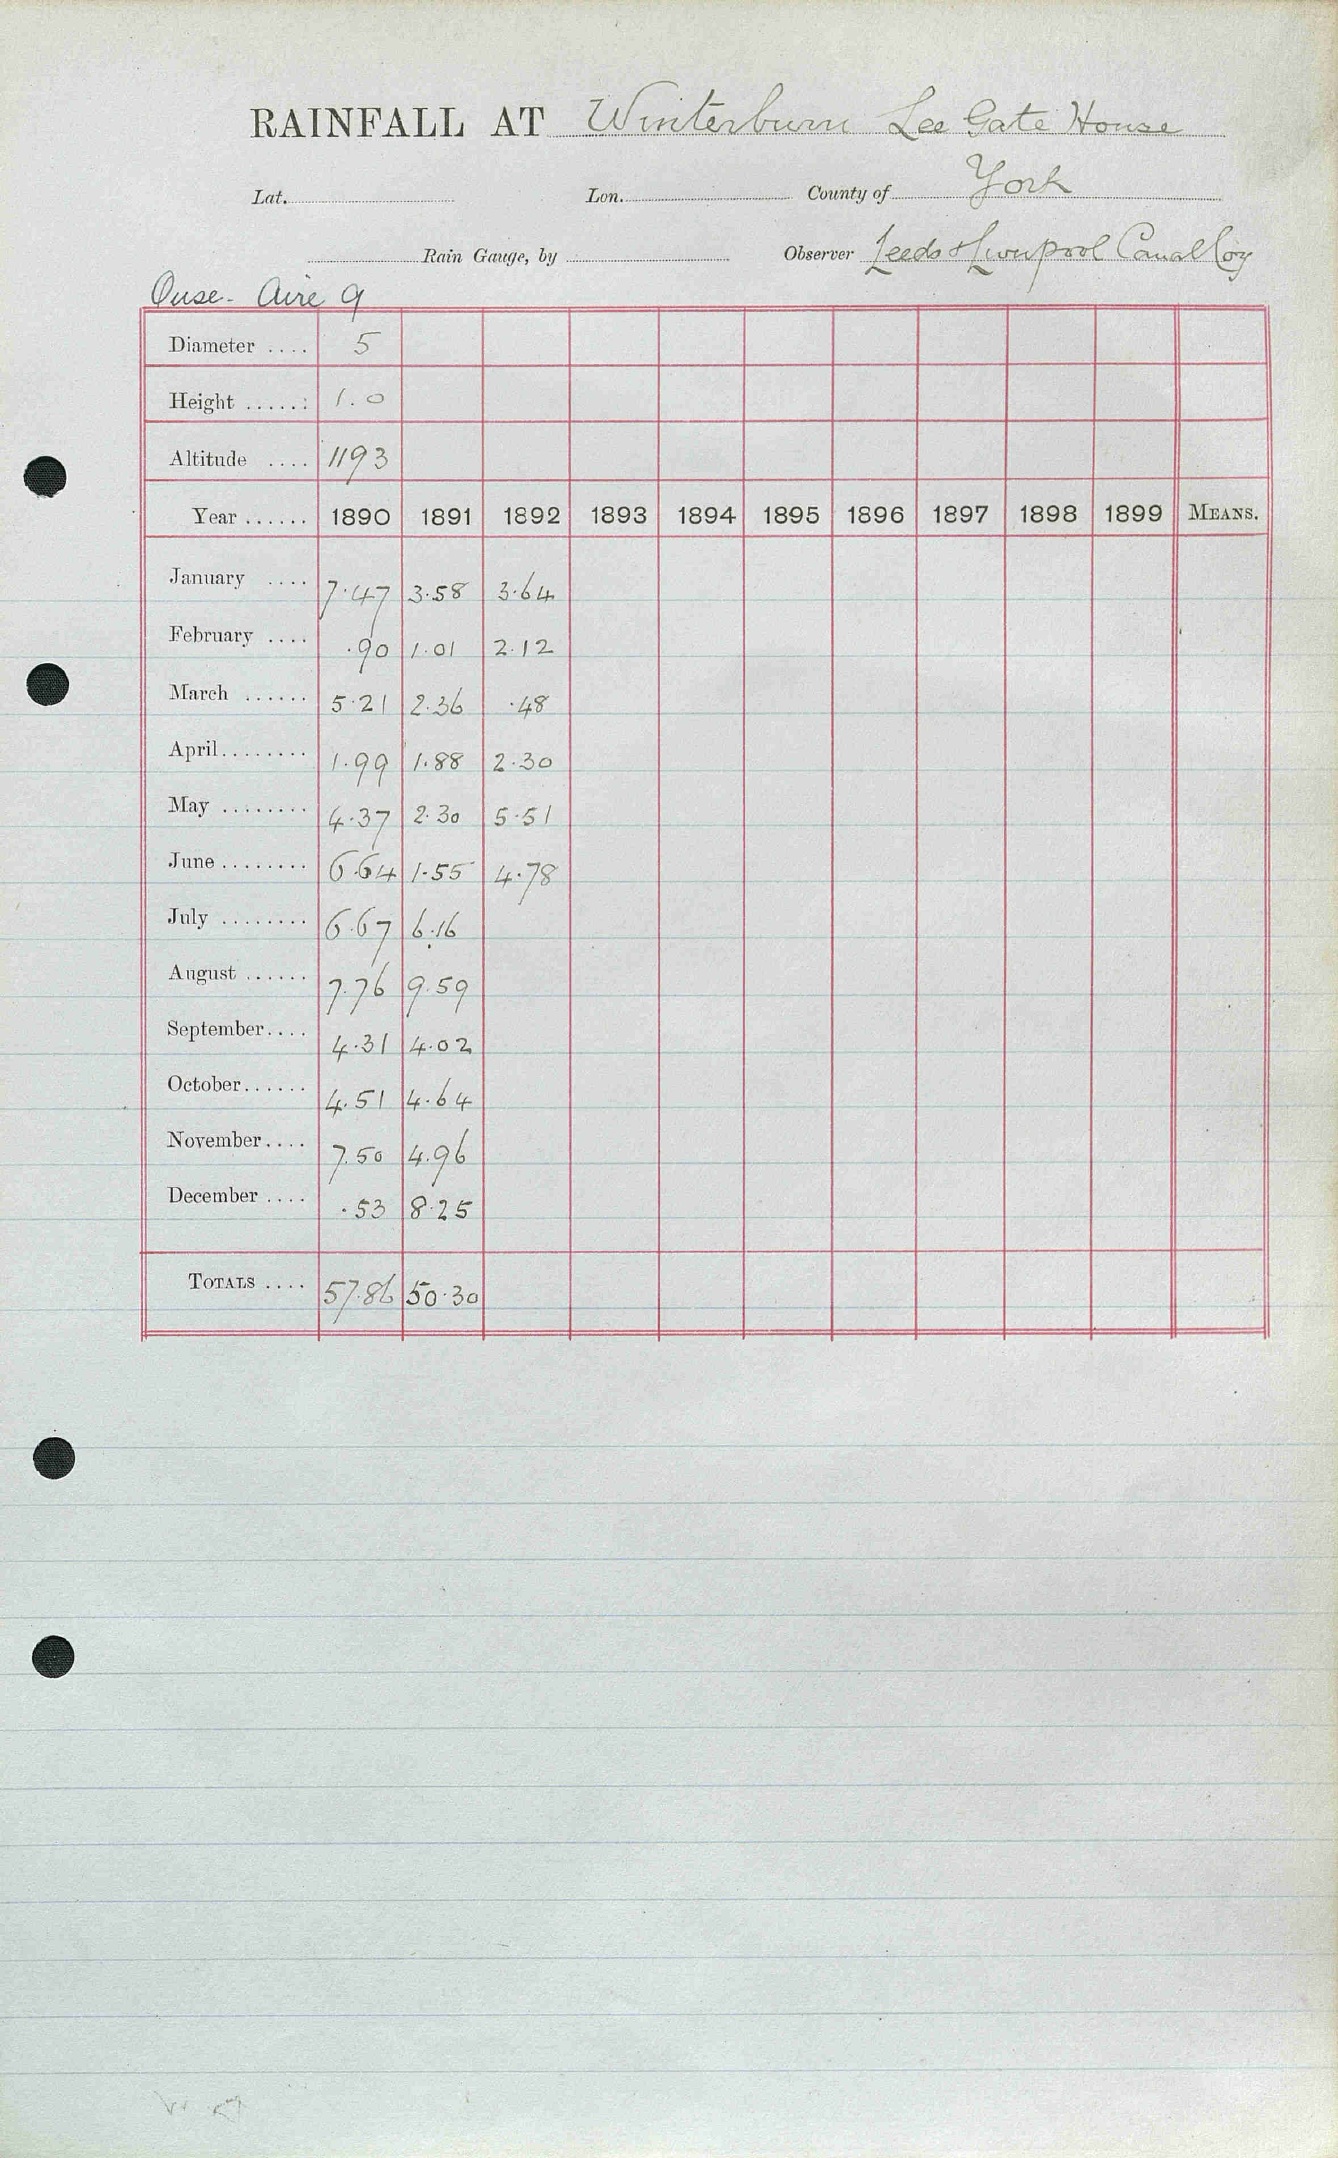 RAINFALL AT Winterburn Lee Gate House
Lat. Lon. County of York
Rain Gauge, by Observer Leeds & Liverpool Canal Coy
Ouse - Aire 9
Diameter .... 5
Height ..... 1.0
Altitude .... 1193
Year ...... 1890 1891 1892 1893 1894 1895 1896 1897 1898 1899 MEANS.
January .... 7.47 3.58 3.64
February .... .90 1.01 2.12
March ...... 5.21 2.36 .48
April........ 1.99 1.88 2.30
May ........ 4.37 2.30 5.51
June ........ 6.64 1.55 4.78
July ........ 6.67 6.16
August ...... 7.76 9.59
September.... 4.31 4.02
October...... 4.51 4.64
November.... 7.50 4.96
December .... .53 8.25
TOTALS .... 57.86 50.30